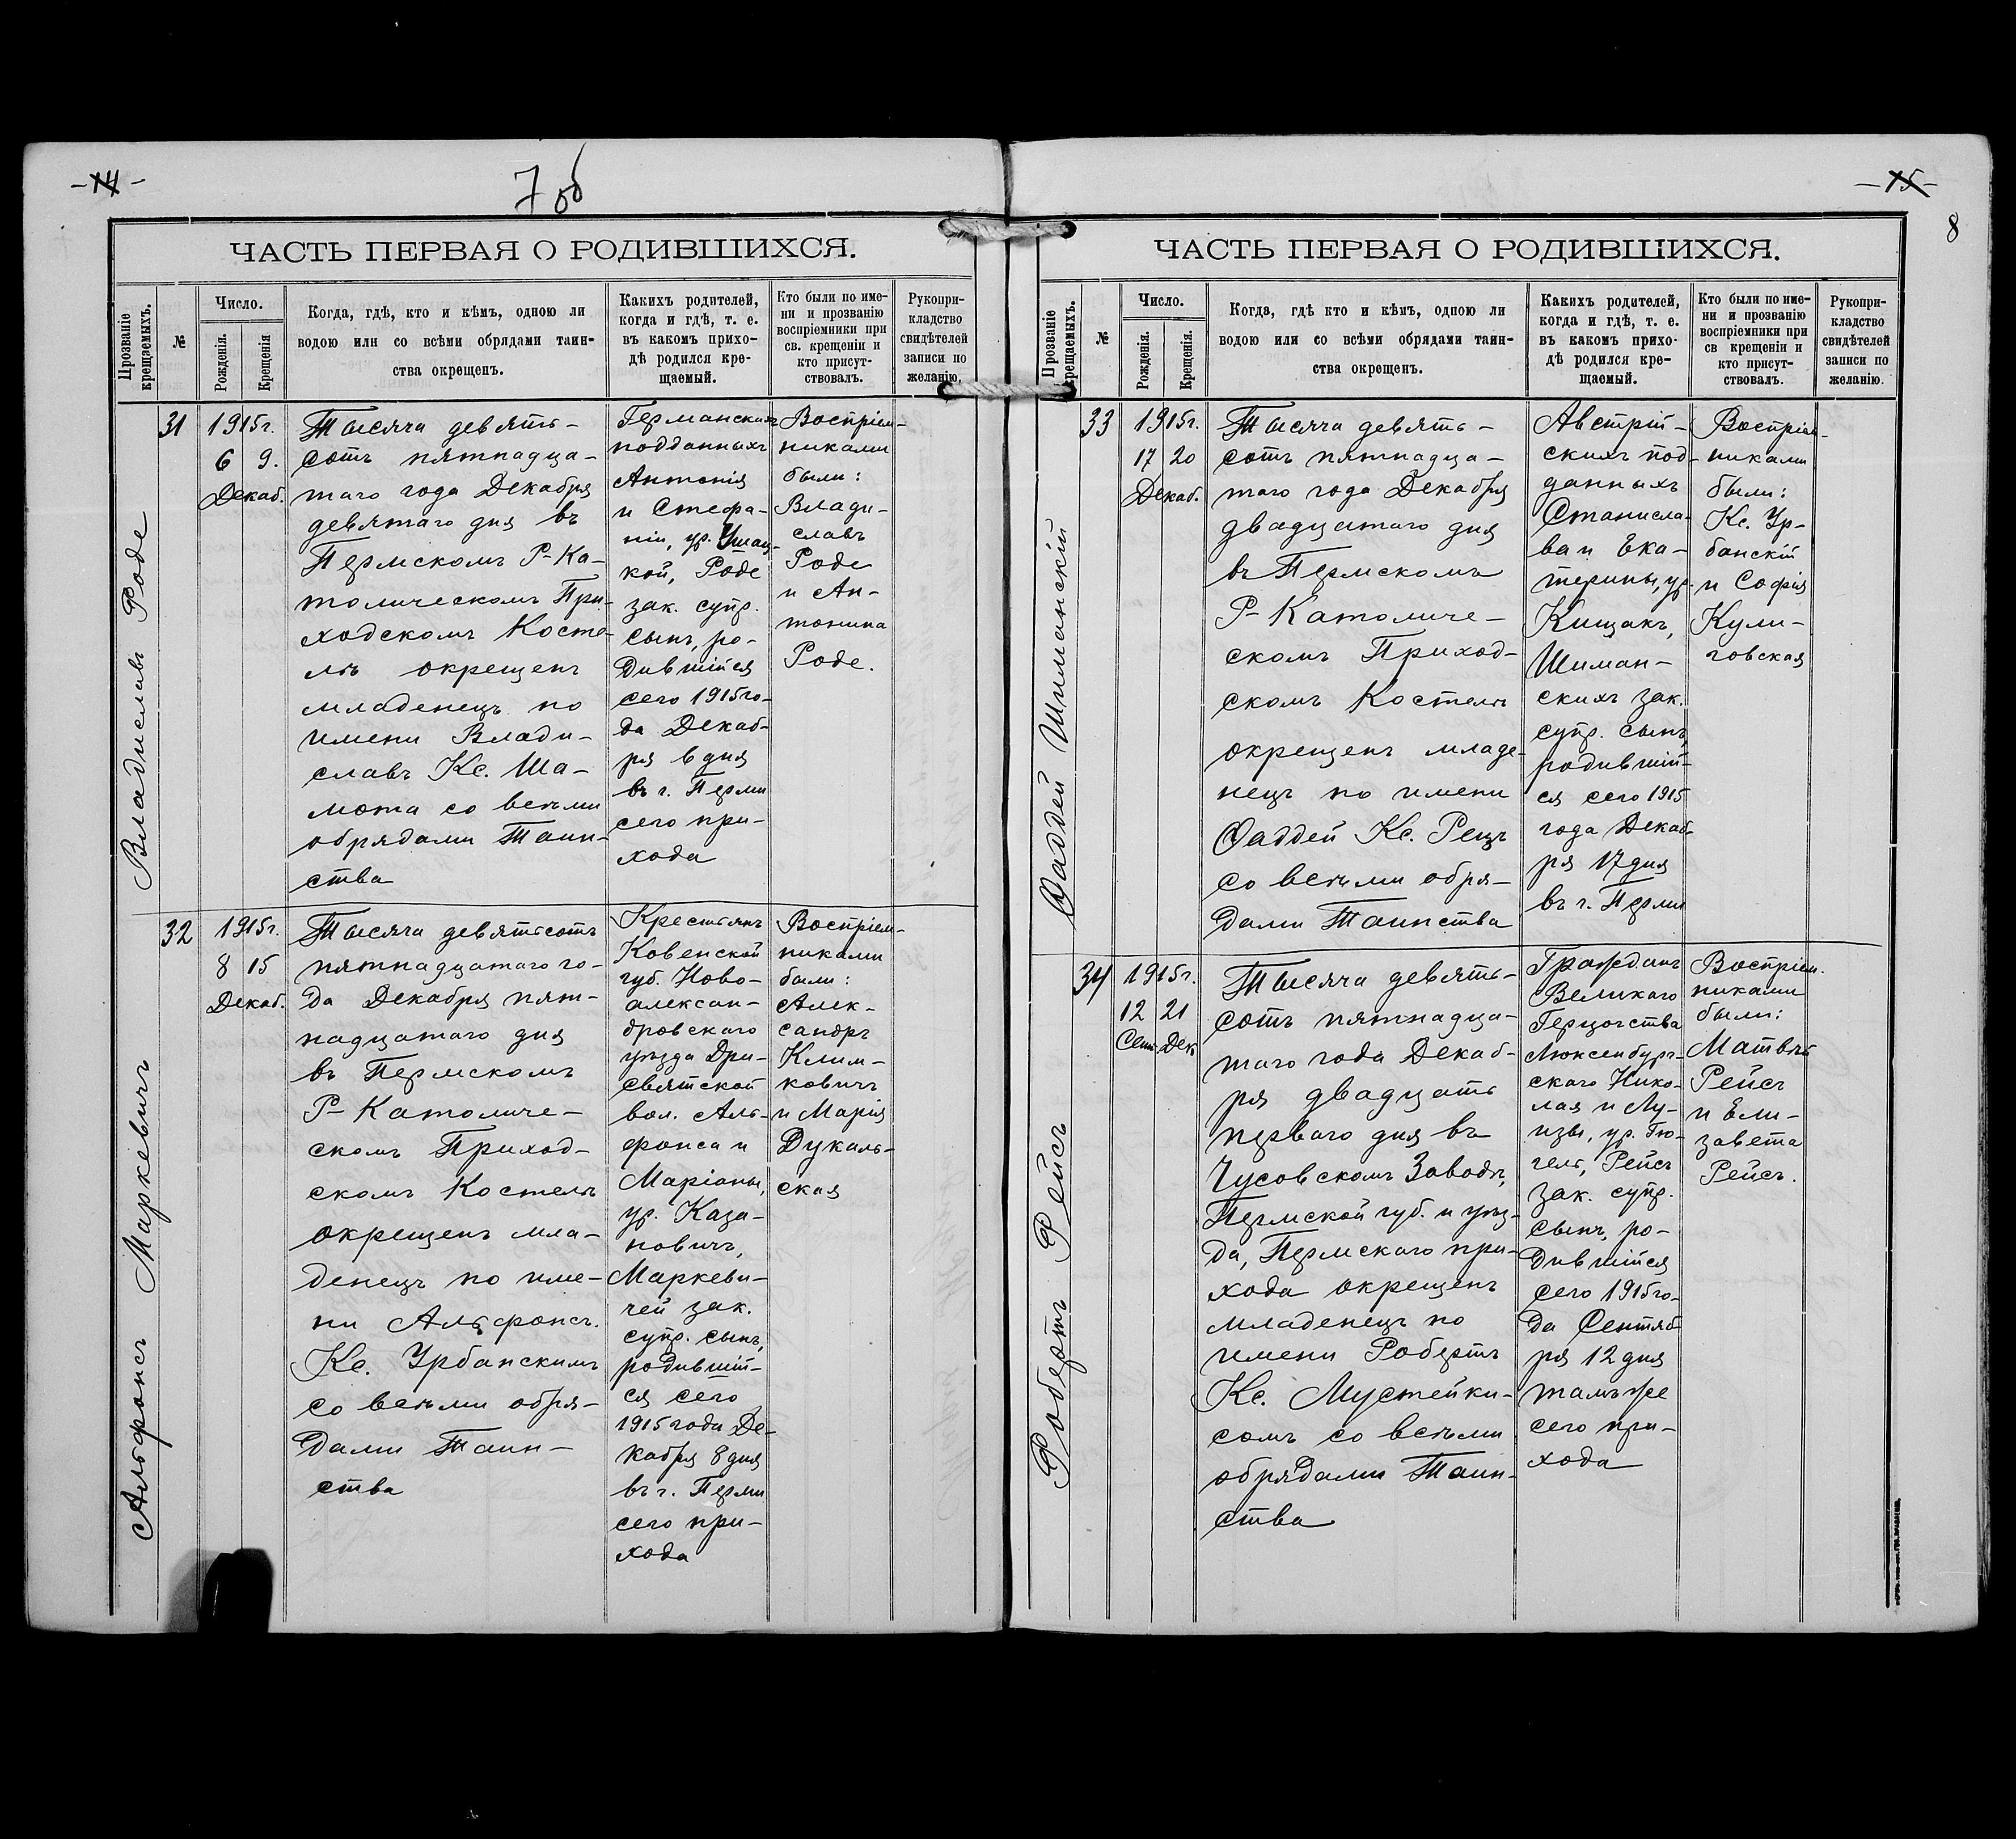 -14-
7 об
ЧАСТЬ ПЕРВАЯ О РОДИВШИХСЯ.
Прозваніе
крещаемыхъ.
№
Число.
Рожденія.
Крещенія
Когда, гдѣ, кто и кѣмъ, одною ли
водою или со всѣми обрядами таин-
ства окрещенъ.
Какихъ родителей,
когда и гдѣ, т. е.
въ какомъ прихо-
дѣ родился кре-
щаемый.
Кто были по име-
ни и прозванію
воспріемники при
св. крещеніи и
кто присут-
ствовалъ.
Рукопри-
кладство
свидѣтелей
записи по
желанію.
Владиславъ Роде
31
1915г.
6 9.
Декаб.
Тысяча девять-
сотъ пятнадца-
таго года Декабря
девятаго дня въ
Пермскомъ Р-Ка-
толическомъ При-
ходскомъ Косте-
лѣ окрещенъ
младенецъ по
имени Влади-
славъ Кс. Ша-
мота со всѣми
обрядами Таин-
ства
Германскихъ
подданныхъ
Антонія
и Стефа-
ніи, ур.
кой, Роде
зак. супр.
сынъ, ро-
дившійся
сего 1915 го-
да Декаб-
ря 6 дня
въ г. Перми
сего при-
хода
Воспріем-
никами
были:
Влади-
славъ
Роде
и Ан-
тонина
Роде.
Альфонсъ Маркевичъ
32
1915г.
8 15
Декаб.
Тысяча девятьсотъ
пятнадцатаго го-
да Декабря пят-
надцатаго дня
въ Пермскомъ
Р-Католиче-
скомъ Приход-
скомъ Костелѣ
окрещенъ мла-
денецъ по име-
ни Альфонсъ.
Кс. Урбанскимъ
со всѣми обря-
дами Таин-
ства
Крестьянъ
Ковенской
губ. Ново-
алексан-
дровскаго
уѣзда Дри-
святской
вол. Аль-
фонса и
Маріанны,
ур. Каза-
новичъ,
Маркеви-
чей зак.
супр. сынъ,
родившій-
ся сего
1915 года Де-
кабря 8 дня
въ г. Перми
сего при-
хода
Воспріем-
никами
были:
Алек-
сандръ
Клим-
ковичъ
и Марія
Дукаль-
ская
-15-
8
ЧАСТЬ ПЕРВАЯ О РОДИВШИХСЯ.
Прозваніе
крещаемыхъ.
№
Число.
Рожденія.
Крещенія.
Когда, гдѣ кто и кѣмъ, одною ли
водою или со всѣми обрядами таин-
ства окрещенъ.
Какихъ родителей,
когда и гдѣ, т. е.
въ какомъ прихо-
дѣ родился кре-
щаемый.
Кто были по име-
ни и прозванію
воспріемники при
св крещеніи и
кто присут-
ствовалъ.
Рукопри-
кладство
свидѣтелей
записи по
желанію.
Фаддей Шиманскій
33
1915г.
17 20
Декаб.
Тысяча девять-
сотъ пятнадца-
таго года Декабря
двадцатаго дня
въ Пермскомъ
Р-Католиче-
скомъ Приход-
скомъ Костелѣ
окрещенъ младе-
нецъ по имени
Фаддей Кс. Рецъ
со всѣми обря-
дами Таинства
Австрій-
скихъ под-
данныхъ
Станисла-
ва и Ека-
терины, ур.
Кищакъ,
Шиман-
скихъ зак.
супр. сынъ,
родившій-
ся сего 1915
года Декаб-
ря 17 дня
въ г. Перми
Воспріем-
никами
были:
Кс. Ур-
банскій
и Софія
Кули-
говская
Робертъ Рейсъ
34
1915г.
12 21
Сент. Дек.
Тысяча девять-
сотъ пятнадца-
таго года Декаб-
ря двадцать
перваго дня въ
Чусовскомъ Заводѣ,
Пермской губ. и уѣз-
да, Пермскаго при-
хода окрещенъ
младенецъ по
имени Робертъ
Кс. Мустейки-
сомъ со всѣми
обрядами Таин-
ства
Гражданъ
Великаго
Герцогства
Люксенбург-
скаго Нико-
лая и Лу-
изы, ур. Гю-
гель, Рейсъ
зак. супр.
сынъ, ро-
дившійся
сего 1915 го-
да Сентяб-
ря 12 дня
тамъ же
сего при-
хода
Воспріем-
никами
были:
Матвѣй
Рейсъ
и Ели-
завета
Рейсъ.